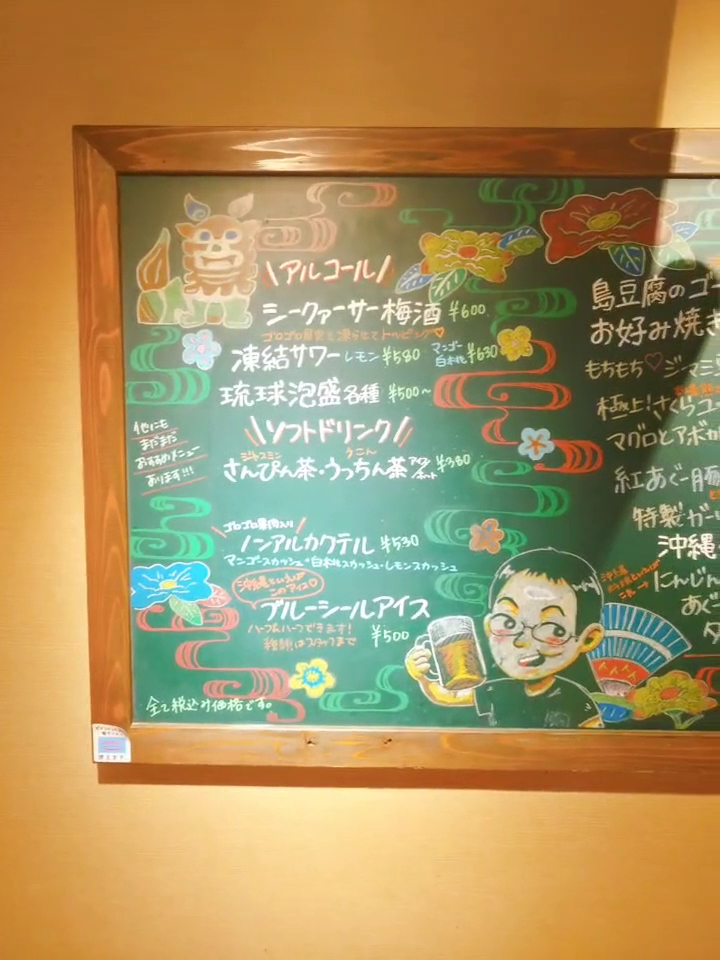 アルコール
シークァーサー梅酒 ¥600
ゴロゴロ果実を凍らせてトッピング♡
凍結サワー レモン ¥580 マンゴー 白木桃 ¥630
琉球泡盛 各種 ¥500~
他にも
まだまだ
おすすめメニュー
あります!!!
ソフトドリンク
ジャスミン うこん
さんぴん茶・うっちん茶 アイス ホット ¥380
ゴロゴロ果物入り
ノンアルカクテル ¥530
マンゴースカッシュ・白桃スカッシュ・レモンスカッシュ
沖縄といえば
このアイス♡
ブルーシールアイス
ハーフ&ハーフできます!
種類はスタッフまで
¥500
全て税込み価格です。
島豆腐のゴ
お好み焼き
もちもち♡ジーマミ
極上!さくらユ
マグロとアボカ
紅あぐー豚
特製ガー
沖縄
にんじん
あぐ